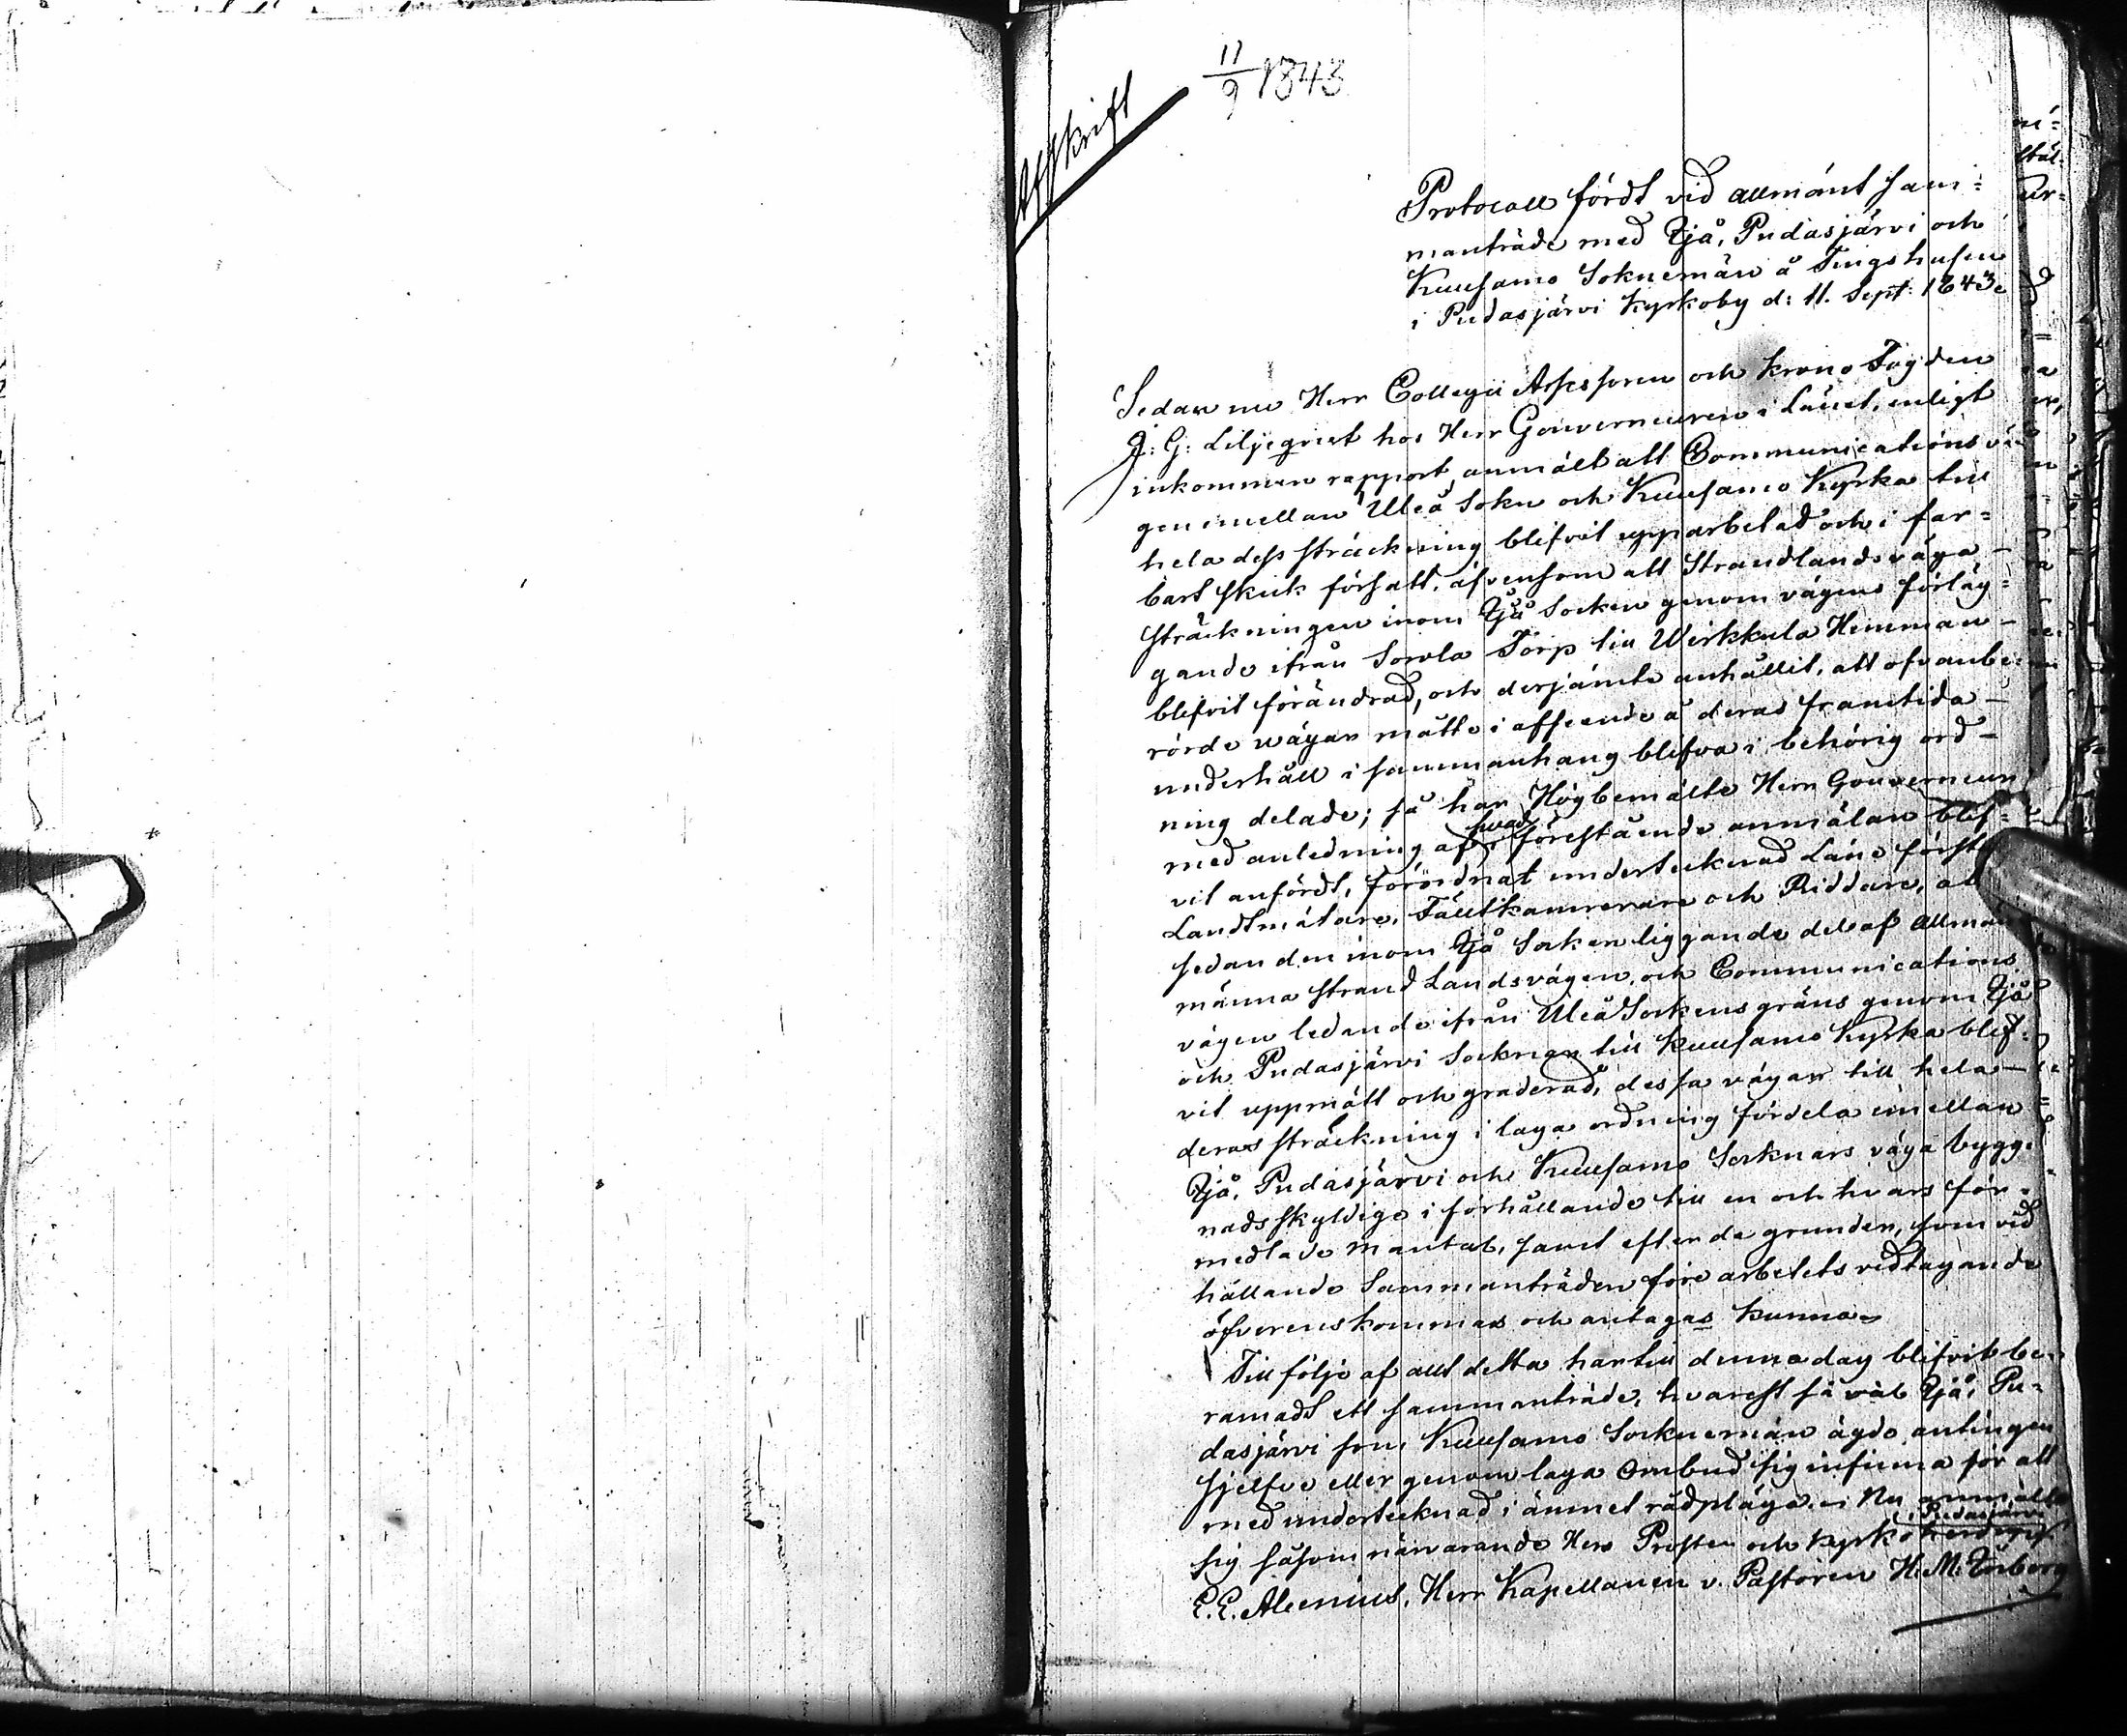 11/9 1843
Afskrift
Protocoll fördt vid allmänt sam=
manträde med Ijå, Pudasjärvi och
Kuusamo Soknemän å Tingshusen
i Pudasjärvi Kyrkoby d: 11. Sept: 1843.
Sedan nu Herr Collegii Assessoren och Krono Fogden
J: G: Liljeqrist hos Herr Gouverneuren i Länet, enligt
inkommen rapport, anmält att Communicationsvä
gen emellan Uleå Sokn och Kuusamo Kyrka till
hela dess sträckning blifvit upparbetad och i far=
bart skick försatt, äfvensom att Strandlandsväga-
sträckningen inom Ijå Socken genom vägens förläg=
gande ifrån Sorvla Torp till Wirkkula Hemman-
blifvit förändrad, och derjämte anhållit, att ofvanbe=
rörde wägar måtte i afseende å deras framtida-
underhåll i sammanhang blifva i behörig ord-
ning delade; så har Högbemälte Herr Gouverneur
med anledning af hvad förestående anmälan blef=
vit anfördt, förordnat undertecknad Läns förste
Landtmätare, Fältkamrerare och Riddare, att
sedan den inom Ijå Socken liggande del af allmän
männa strand Landsvägen, och Communications
vägen ledande ifrån Uleå Sockens gräns genom Ijå
och Pudasjärvi Socknar till Kuusamo Kyrka blef=
vit uppmätt och graderad, dessa vägar till hela-
deras sträckning i laga ordning fördela emellan
Ijå, Pudasjärvi och Kuusamo Socknars väga bygg=
nadsskyldige i förhållande till en och hvars för=
medlade mantal, samt efter de grunder, som vid
hållande Sammanträden före arbetets vidtagande
öfverenskommas och antagas kunna.
Till följe af allt detta har till denna dag blifvit be=
ramadt ett sammanträde, hvarest så väl Ijå, Pu=
dasjärvi som Kuusamo Socknemän ägde antingen
sjelfve eller genom laga Ombud sig infinna för att
med undertecknad i ämnet rådpläga. Nu anmälte
sig såsom närvarande Herr Prosten och Kyrkoherden i Pudasjärvi
E. E. Alcenius, Herr Kapellanen v. Pastoren H. M.